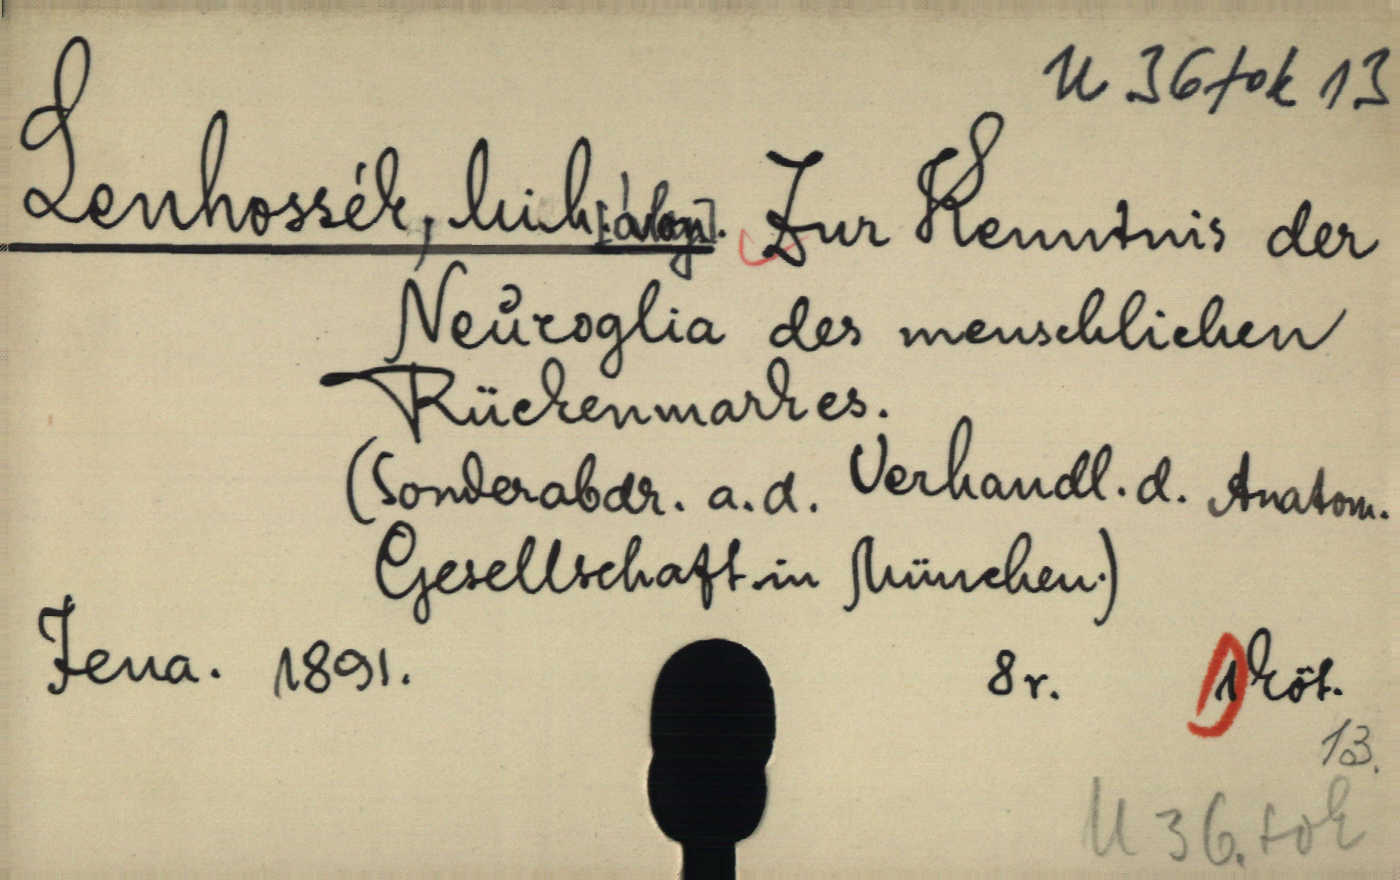 U 36 tok 13
Lenhossék, Mich.[ály]. Zur Kenntnis der
Neuroglia des menschlichen
Rückenmarkes.
(Sonderabdr. a. d. Verhandl. d. Anatom.
Gesellschaft in München.)
Jena. 1891. 8r. 1 köt.
13.
U 36. tok